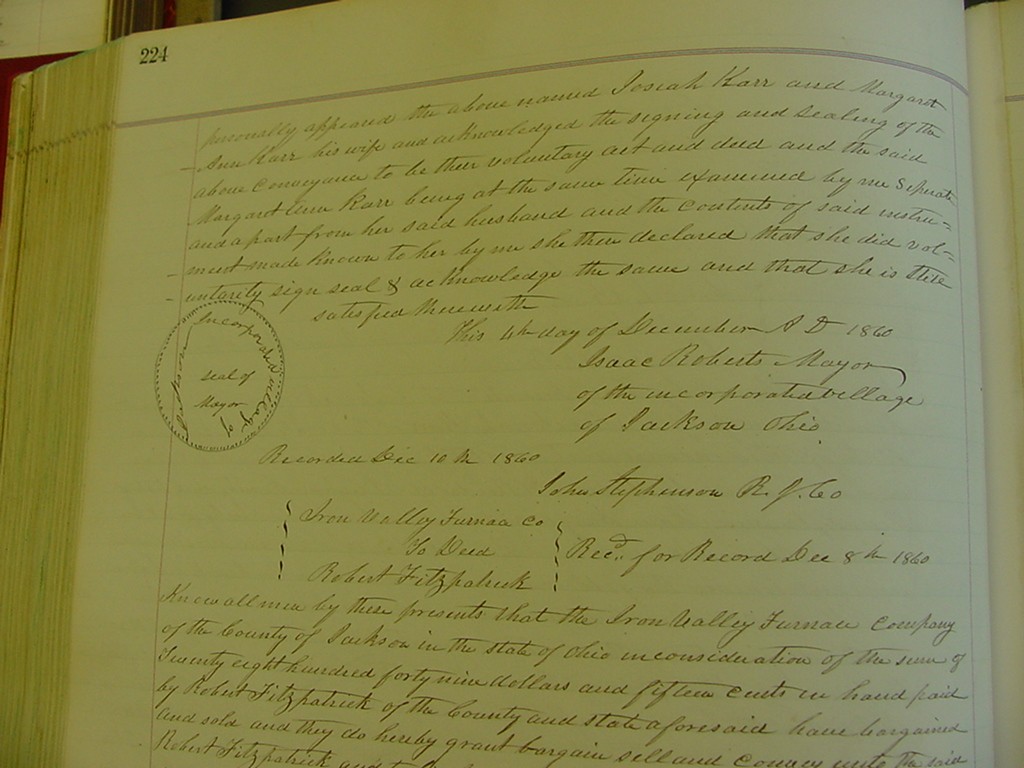 224
personally appeared the above named Josiah Karr and Margaret
Ann Karr his wife and acknowledged the signing and sealing of the
above conveyance to be their voluntary act and deed and the said
Margaret Ann Karr being at the same time examined by me seperate
and apart from her said husband and the contents of said instru=
ment made known to her by me she then declared that she did vol=
untarily sign seal & acknowledge the same and that she is still
satisfied therewith
This 4th day of December A D 1860
Isaac Roberts Mayor
of the incorporated village
of Jackson Ohio
Incorporated village of
Jackson
seal of
Mayor
Recorded Dec 10th 1860
John Stephenson R. J. Co
Iron Valley Furnace Co
To Deed
Robert Fitzpatrick
Recd. for Record Dec 8th 1860
Know all men by these presents that the Iron Valley Furnace Company
of the County of Jackson in the state of Ohio in consideration of the sum of
Twenty eight hundred forty nine dollars and fifteen cents in hand paid
by Robert Fitzpatrick of the County and state aforesaid have bargained
and sold and they do hereby grant bargain sell and convey unto the said
Robert Fitzpatrick and